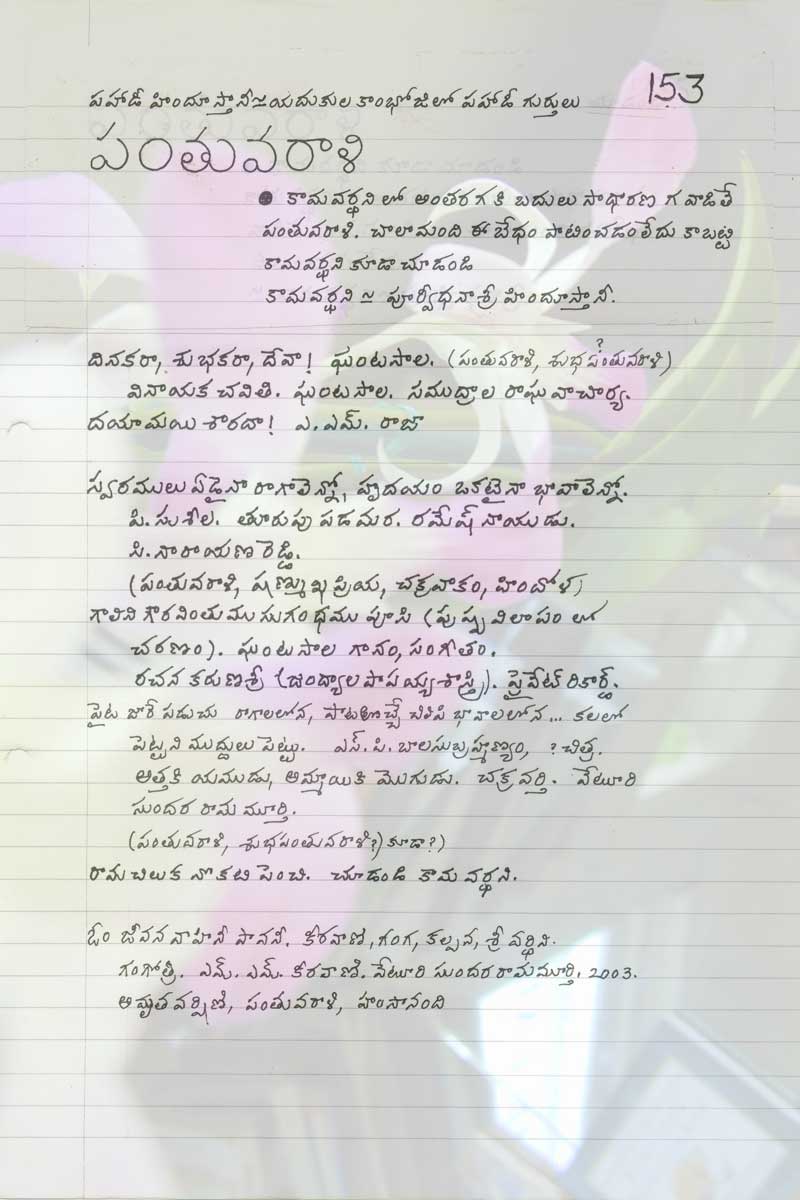 153
పహాడీ హిందూస్తానీ≃యదుకుల కాంభోజిలో పహాడీ గుర్తులు
పంతువరాళి
● కామవర్ధనిలో అంతర గకి బదులు సాధారణ గ వాడితే
పంతువరాళి. చాలామంది ఈ బేధం పాటించడంలేదు కాబట్టి
కామవర్ధని కూడా చూడండి
కామవర్ధని ≃ పూర్వీధనాశ్రీ హిందూస్తానీ.
దినకరా, శుభకరా, దేవా! ఘంటసాల. (పంతువరాళి, శుభపంతువరాళి?)
వినాయక చవితి. ఘంటసాల. సముద్రాల రాఘవాచార్య.
దయామయి శారదా! ఎ.ఎమ్. రాజా
స్వరములు ఏడైనా రాగాలెన్నో, హృదయం ఒకటైనా భావాలెన్నో.
పి.సుశీల. తూరుపు పడమర. రమేష్ నాయుడు.
సి.నారాయణరెడ్డి.
(పంతువరాళి, షణ్ముఖప్రియ, చక్రవాకం, హిందోళ)
గాలిని గౌరవింతుము సుగంధము పూసి (పుష్పవిలాపం లో
చరణం). ఘంటసాల గానం, సంగీతం.
రచన కరుణశ్రీ (జంధ్యాల పాపయ్యశాస్త్రి). ప్రైవేట్ రికార్డ్.
పైట జారే పడుచు రాగాలలోన, పాటకొచ్చే చిలిపి భావాలలోన... కలలో
పెట్టని ముద్దులు పెట్టు. ఎస్.పి.బాలసుబ్రహ్మణ్యం, ? చిత్ర.
అత్తకి యముడు, అమ్మాయికి మొగుడు. చక్రవర్తి. వేటూరి
సుందర రామ మూర్తి.
(పంతువరాళి, శుభపంతువరాళి?) కూడా?)
రామచిలుక నొకటి పెంచి. చూడండి కామవర్ధని.
ఓం జీవన వాహినీ పావనీ. కీరవాణి, గంగ, కల్పన, శ్రీవర్ధిని.
గంగోత్రి. ఎమ్. ఎమ్. కీరవాణి. వేటూరి సుందరరామమూర్తి. 2003.
అమృతవర్షిణి, పంతువరాళి, హంసానంది